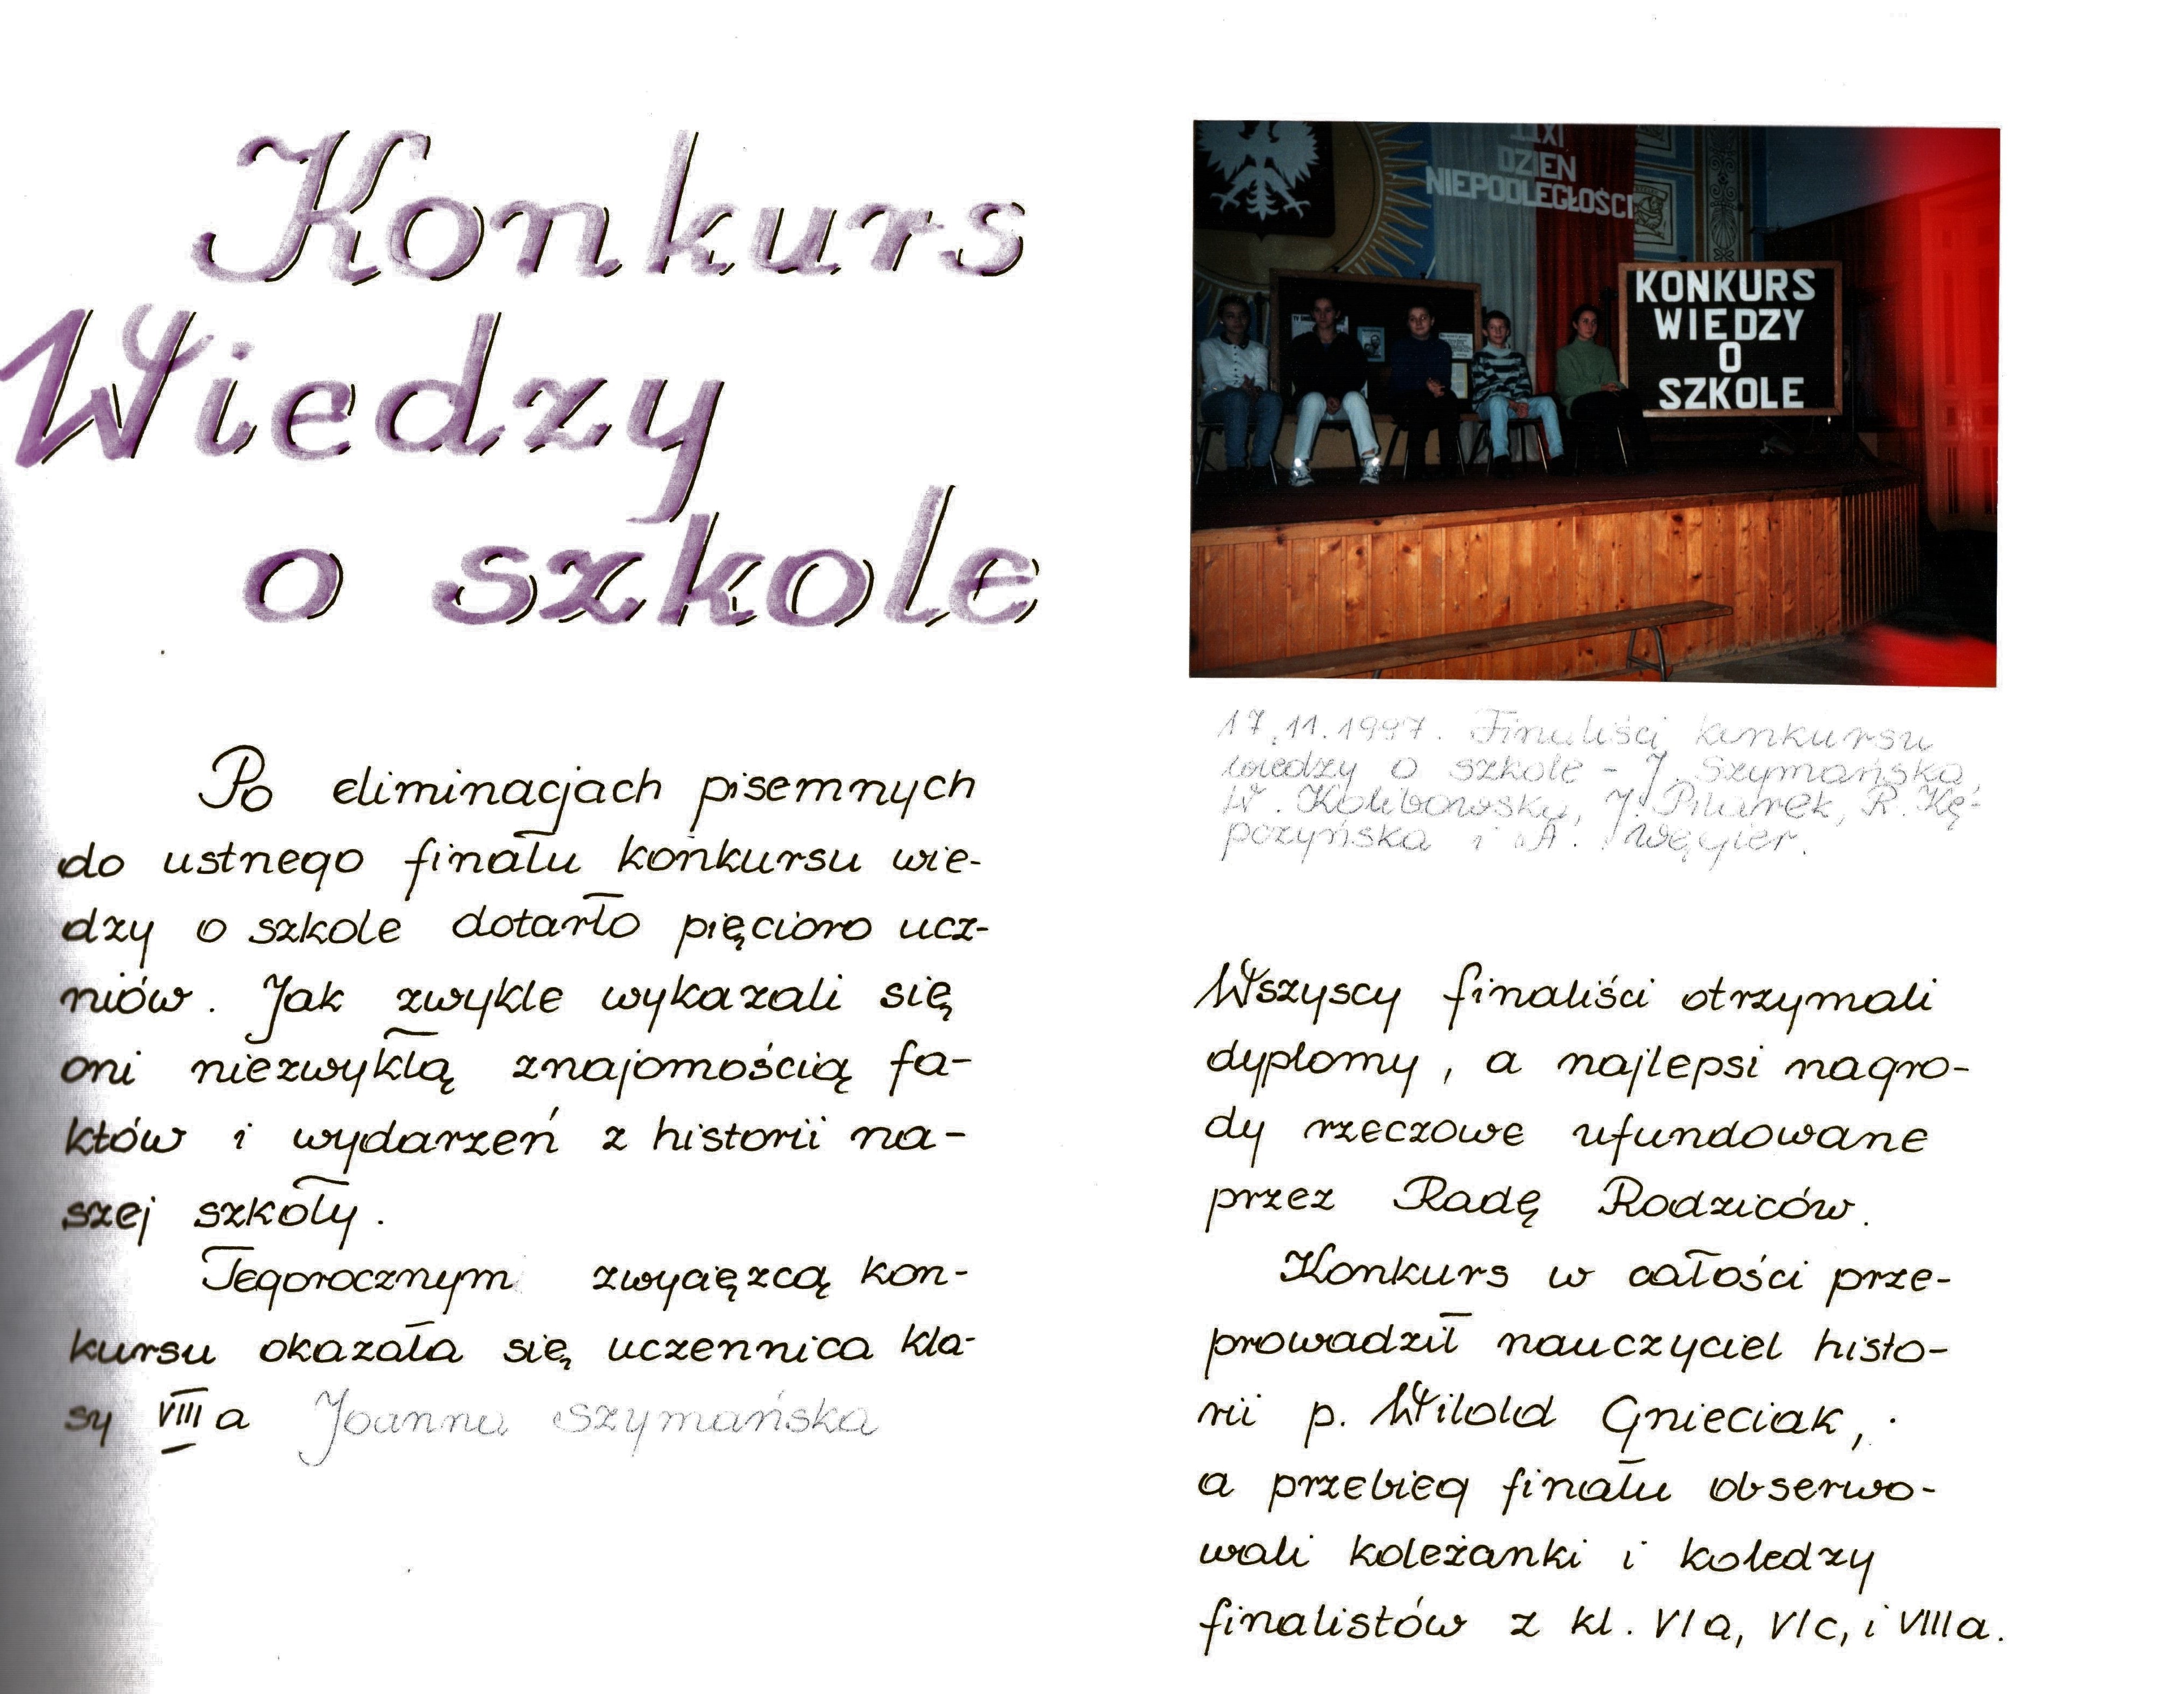 Konkurs
Wiedzy
o szkole
Po eliminacjach pisemnych
do ustnego finału konkursu wie-
dzy o szkole dotarło pięcioro ucz-
niów. Jak zwykle wykazali się
oni niezwykłą znajomością fa-
któw i wydarzeń z historii na-
szej szkoły.
Tegorocznym zwycięzcą kon-
kursu okazała się uczennica kla-
sy VIII a Joanna Szymańska
XI
DZIEŃ
NIEPODLEGŁOŚCI
KONKURS
WIEDZY
O
SZKOLE
17.11.1997. Finaliści konkursu
wiedzy o szkole - J. Szymańska,
W. J. Pilarek, R. Kę-
pczyńska i A. Węgier.
Wszyscy finaliści otrzymali
dyplomy, a najlepsi nagro-
dy rzeczowe ufundowane
przez Radę Rodziców.
Konkurs w całości prze-
prowadził nauczyciel histo-
rii p. Witold Gnieciak,
a przebieg finału obserwo-
wali koleżanki i koledzy
finalistów z kl. VI a, VI c, i VIII a.